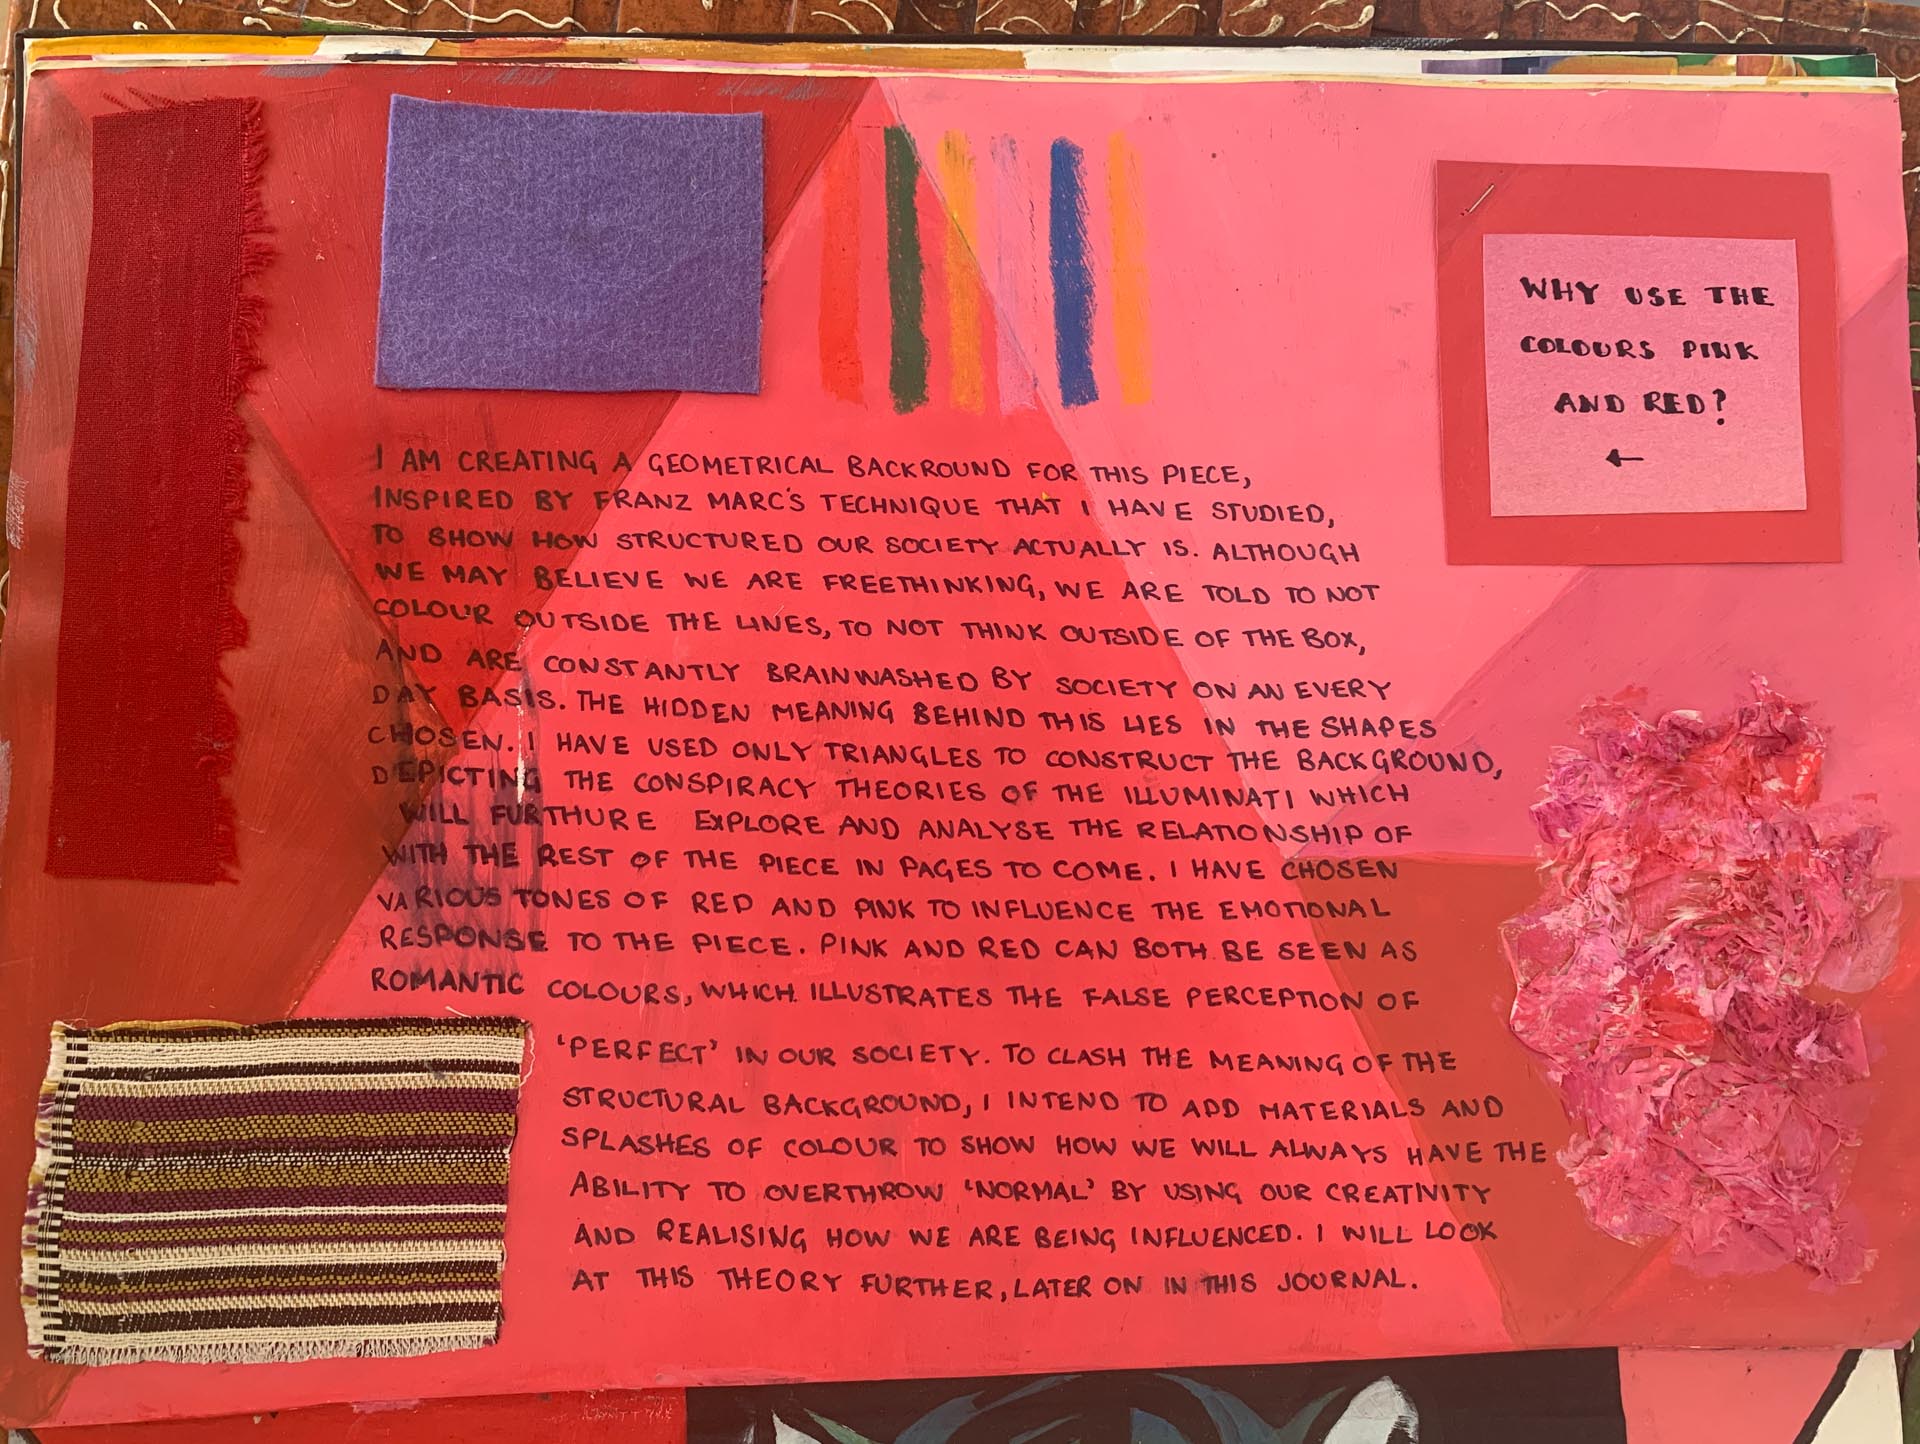 WHY USE THE
COLOURS PINK
AND RED?
←
I AM CREATING A GEOMETRICAL BACKROUND FOR THIS PIECE,
INSPIRED BY FRANZ MARC'S TECHNIQUE THAT I HAVE STUDIED,
TO SHOW HOW STRUCTURED OUR SOCIETY ACTUALLY IS. ALTHOUGH
WE MAY BELIEVE WE ARE FREETHINKING, WE ARE TOLD TO NOT
COLOUR OUTSIDE THE LINES, TO NOT THINK OUTSIDE OF THE BOX,
AND ARE CONSTANTLY BRAINWASHED BY SOCIETY ON AN EVERY
DAY BASIS. THE HIDDEN MEANING BEHIND THIS LIES IN THE SHAPES
CHOSEN. I HAVE USED ONLY TRIANGLES TO CONSTRUCT THE BACKGROUND,
DEPICTING THE CONSPIRACY THEORIES OF THE ILLUMINATI WHICH
WILL FURTHURE EXPLORE AND ANALYSE THE RELATIONSHIP OF
WITH THE REST OF THE PIECE IN PAGES TO COME. I HAVE CHOSEN
VARIOUS TONES OF RED AND PINK TO INFLUENCE THE EMOTIONAL
RESPONSE TO THE PIECE. PINK AND RED CAN BOTH BE SEEN AS
ROMANTIC COLOURS, WHICH ILLUSTRATES THE FALSE PERCEPTION OF
'PERFECT' IN OUR SOCIETY. TO CLASH THE MEANING OF THE
STRUCTURAL BACKGROUND, I INTEND TO ADD MATERIALS AND
SPLASHES OF COLOUR TO SHOW HOW WE WILL ALWAYS HAVE THE
ABILITY TO OVERTHROW 'NORMAL' BY USING OUR CREATIVITY
AND REALISING HOW WE ARE BEING INFLUENCED. I WILL LOOK
AT THIS THEORY FURTHER, LATER ON IN THIS JOURNAL.